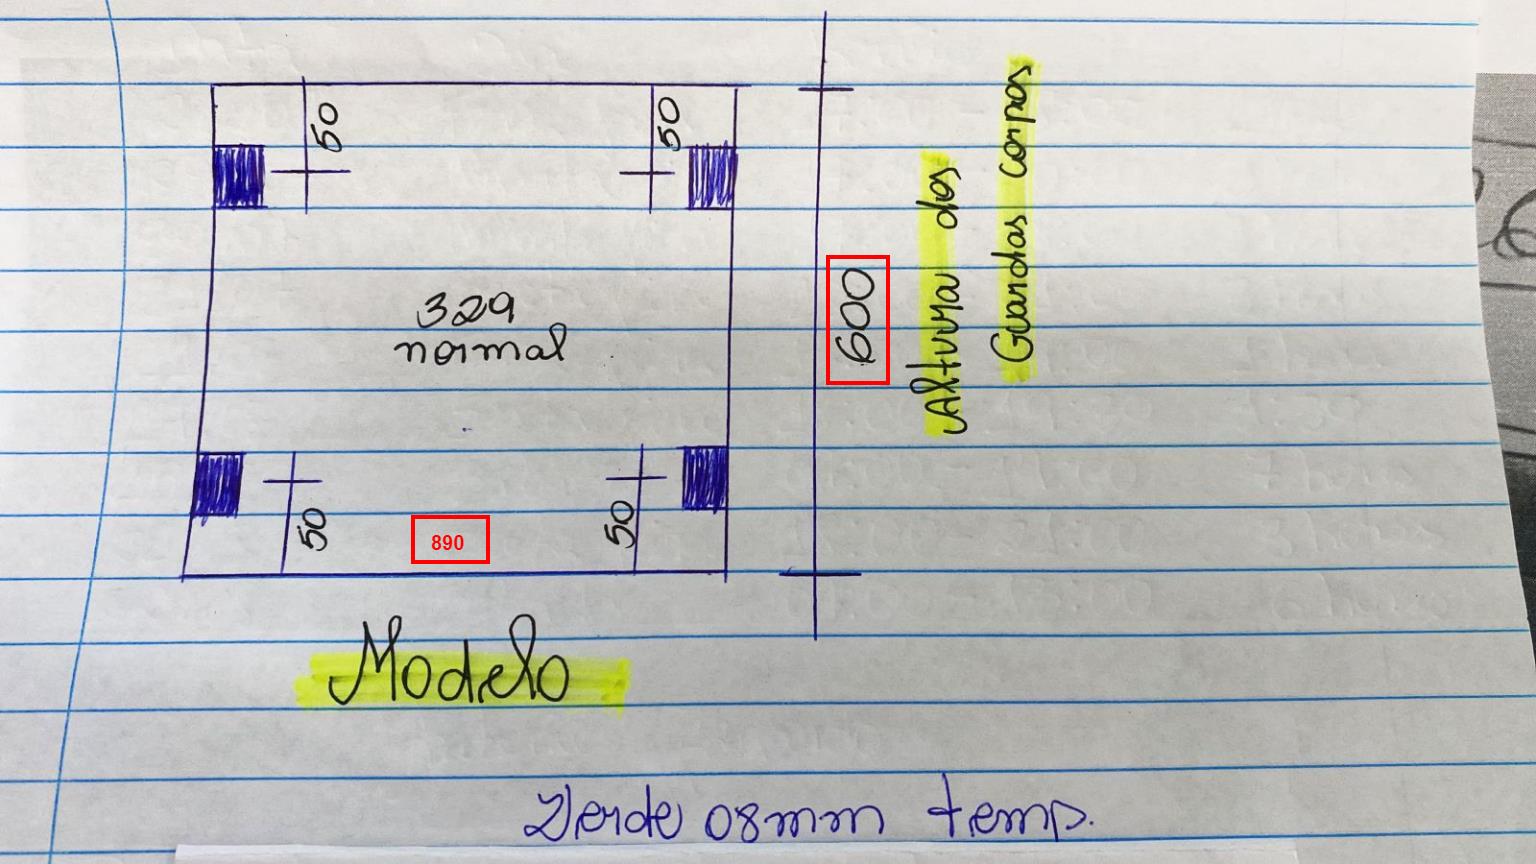 50
50
329
normal
50
50
890
600
Altura dos
Guardas corpos
Modelo
Verde 08mm temp.